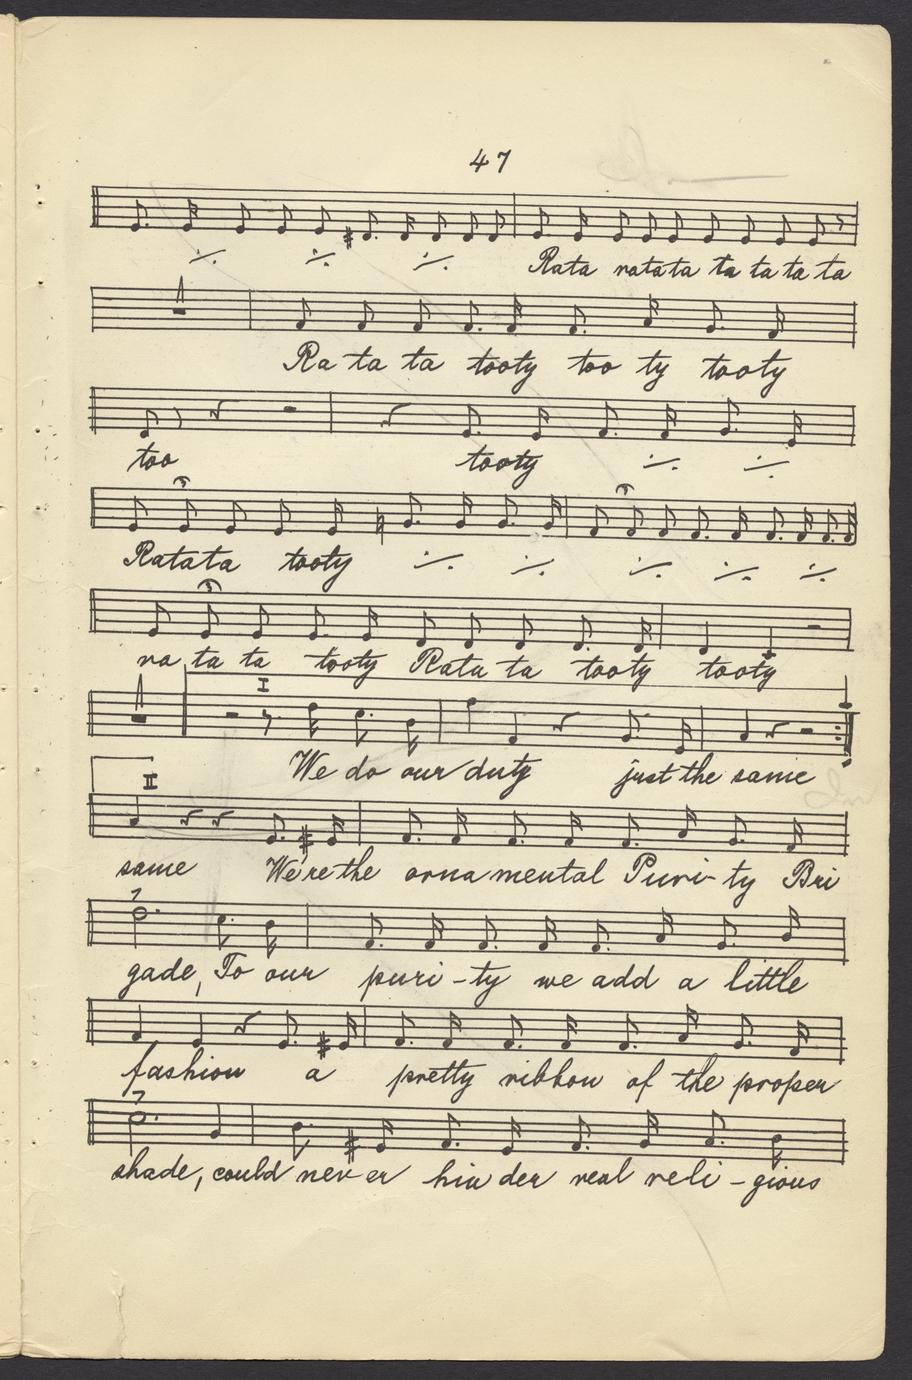 47
Rata ratata ta ta ta ta
Ra ta ta tooty too ty tooty
too tooty
Ratata tooty
ra ta ta tooty Rata ta tooty tooty
I
We do our duty just the same
II
same We're the ornamental Puri-ty Bri
gade, To our puri-ty we add a little
fashion a pretty ribbon of the proper
shade, could nev er hin der real reli-gious